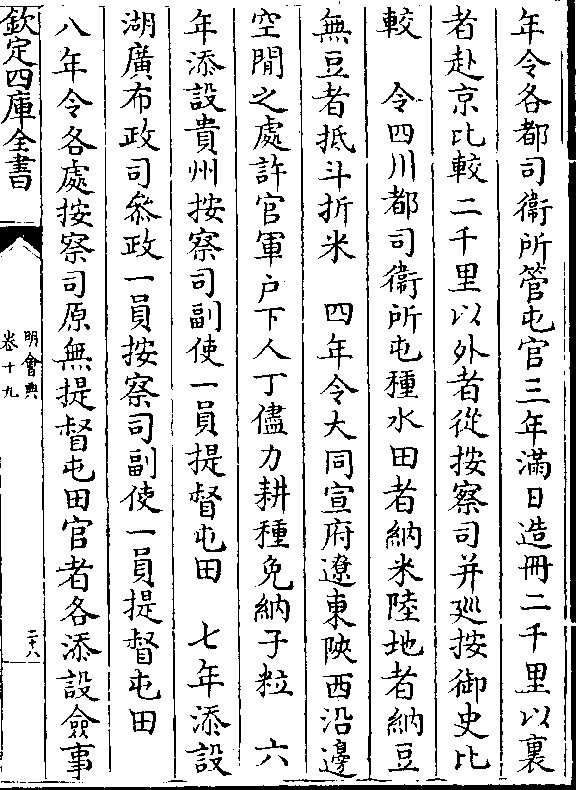 年令各都司衞所管屯官三年滿日造冊二千里以裏
者赴京比較二千里以外者從按察司并廵按御史比
較　令四川都司衞所屯種水田者納米陸地者納豆
無豆者抵斗折米　四年令大同宣府遼東陜西沿邊
空閒之處許官軍户下人丁儘力耕種免納子粒　六
年添設貴州按察司副使一員提督屯田　七年添設
湖廣布政司叅政一員按察司副使一員提督屯田
八年令各處按察司原無提督屯田官者各添設僉事
欽定四庫全書
明會典
卷十九
二十八